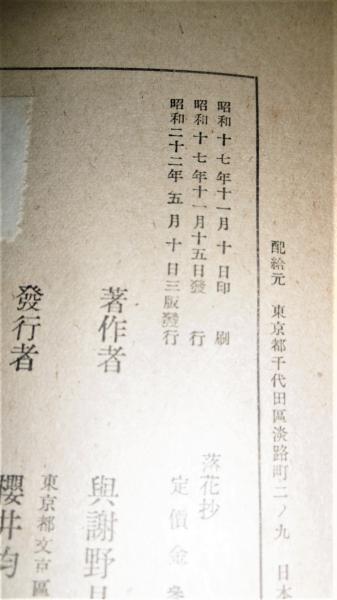 配給元 東京都千代田區淡路町二ノ九 日本
昭和十七年十一月十日印刷
昭和十七年十一月十五日發行
昭和二十二年五月十日三版發行
落花抄
定價金
著作者 與謝野
發行者 櫻井均
東京都文京區